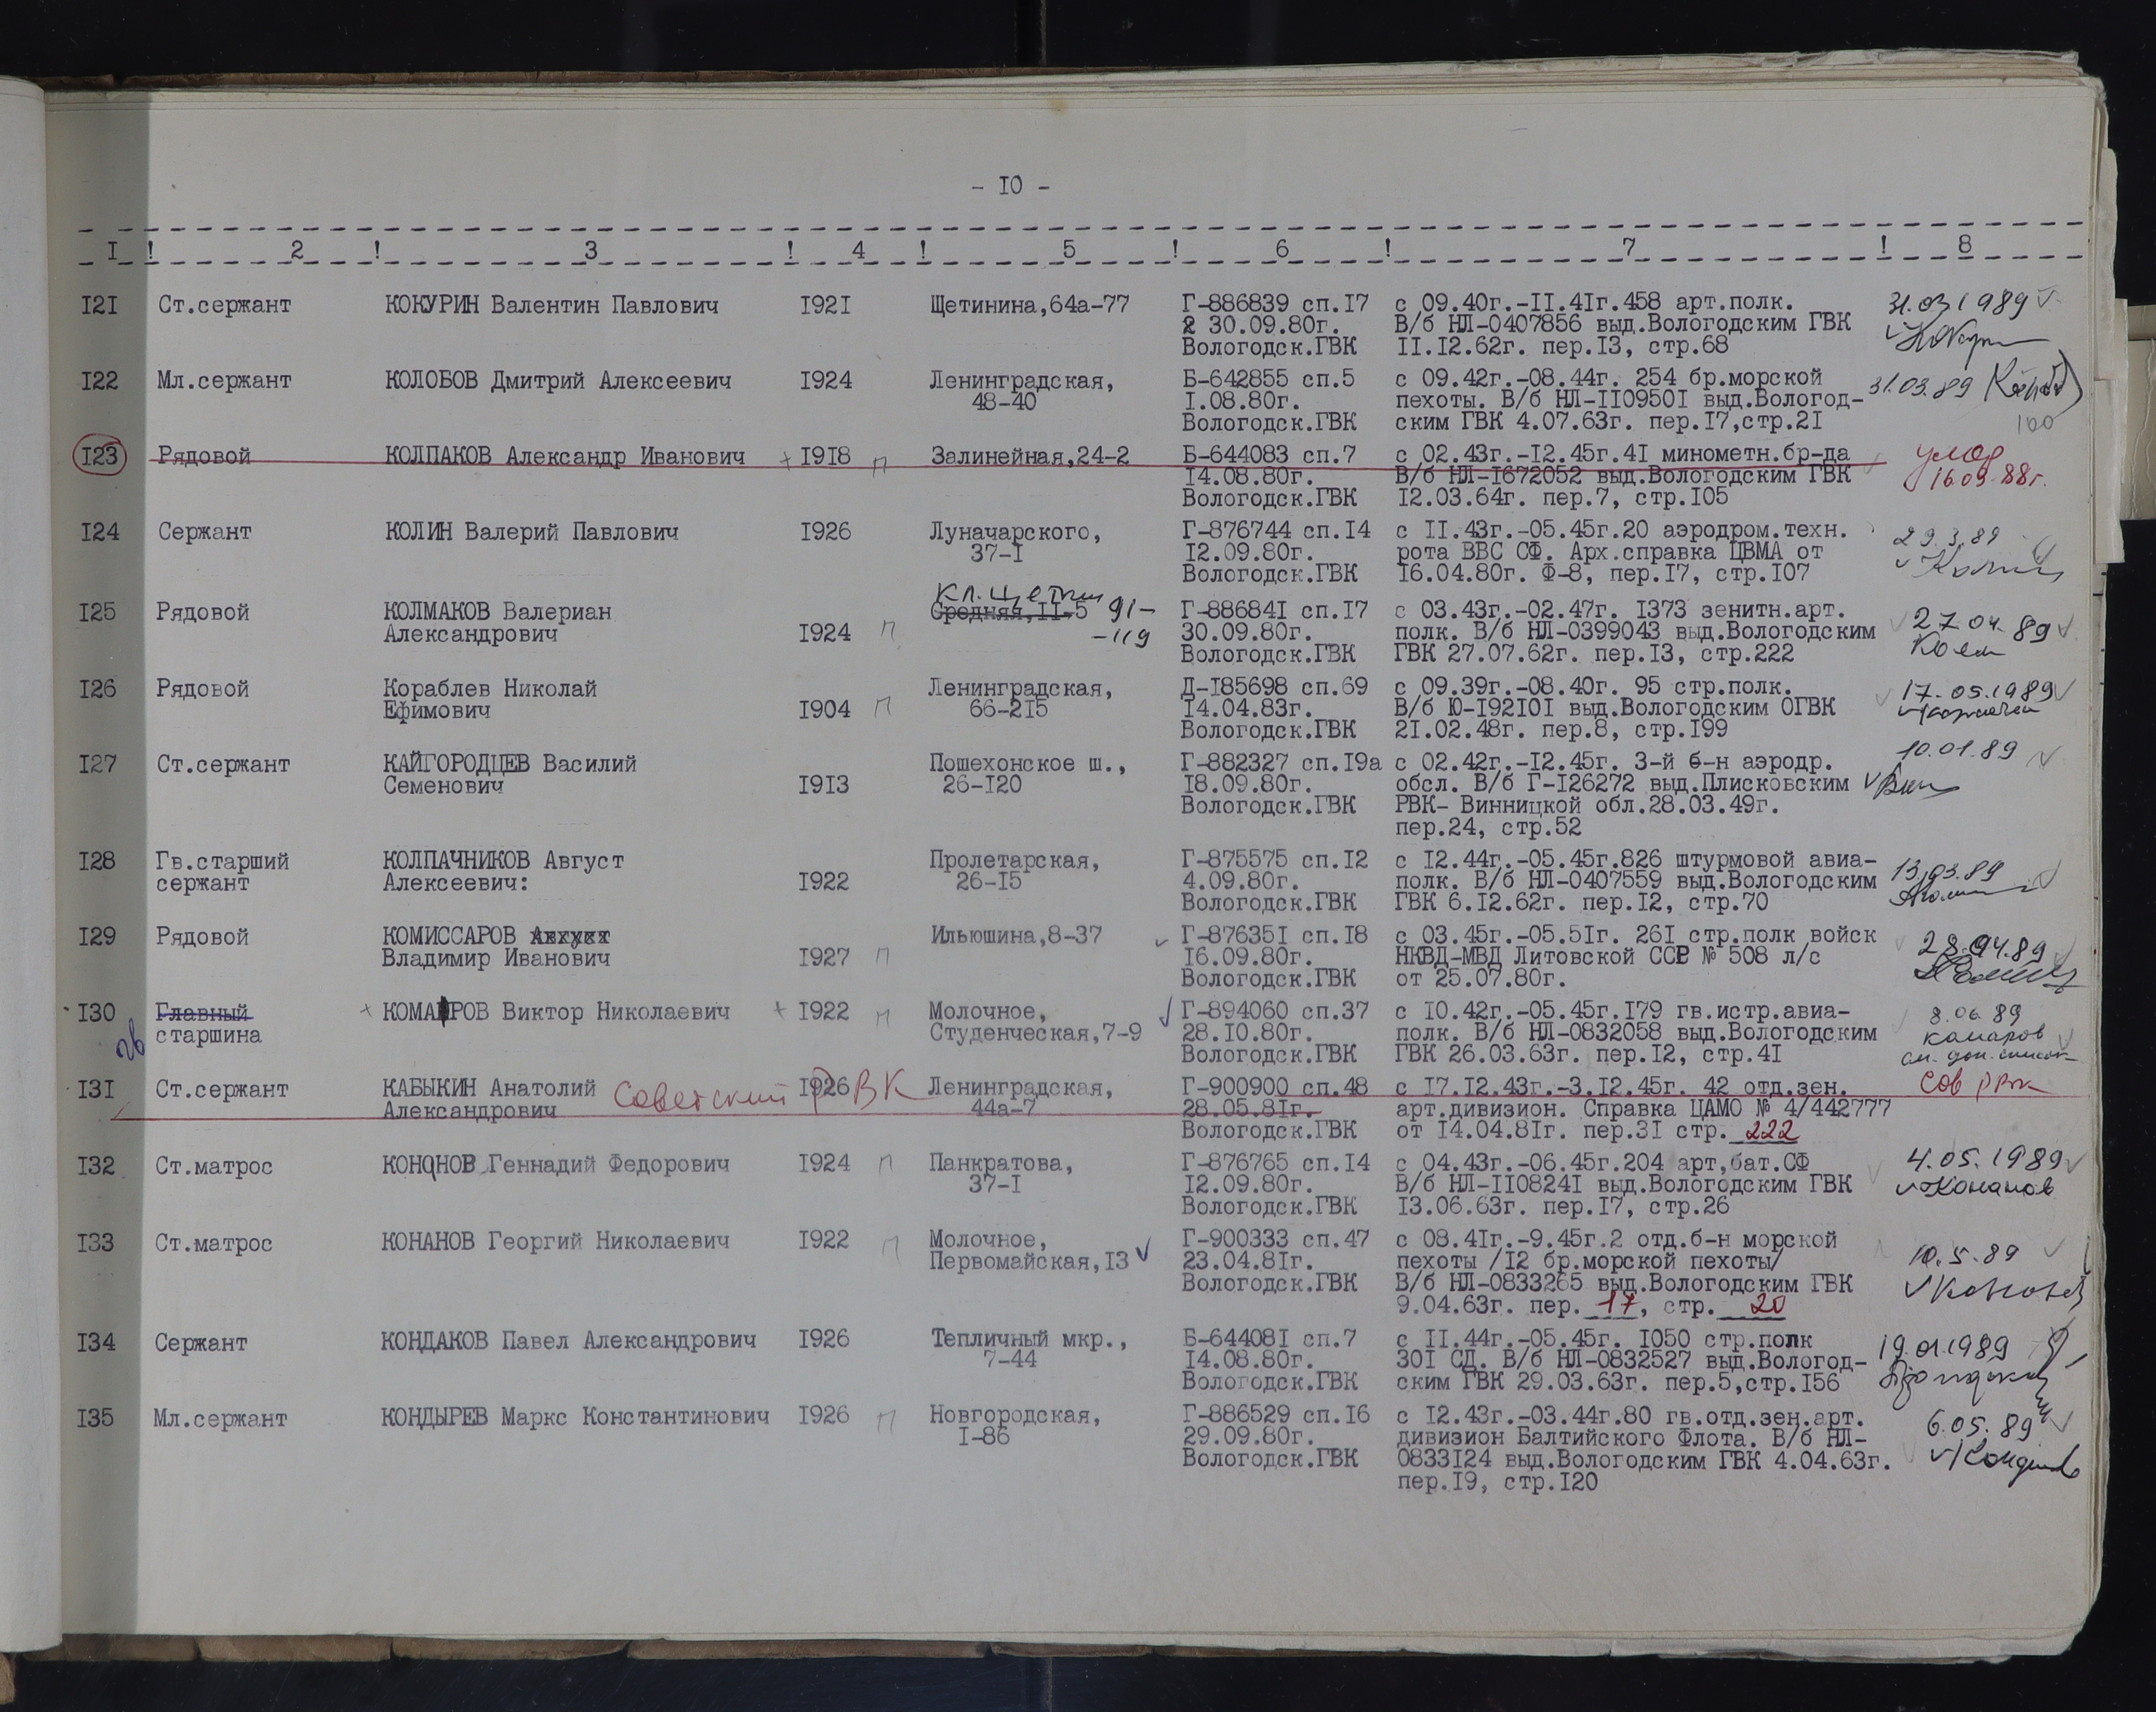 - 10 -
1 ! 2 ! 3 ! 4 ! 5 ! 6 ! 7 ! 8
121 Ст.сержант КОКУРИН Валентин Павлович 1921 Щетинина,64а-77 Г-886839 сп.17 с 09.40г.-11.41г.458 арт.полк. 31.03.1989
30.09.80г. В/б НЛ-0407856 выд.Вологодским ГВК
Вологодск.ГВК 11.12.62г. пер.13, стр.68
122 Мл.сержант КОЛОБОВ Дмитрий Алексеевич 1924 Ленинградская, Б-642855 сп.5 с 09.42г.-08.44г. 254 бр.морской 31.03.89
48-40 1.08.80г. пехоты. В/б НЛ-1109501 выд.Вологод-
Вологодск.ГВК ским ГВК 4.07.63г. пер.17,стр.21 100
123 Рядовой КОЛПАКОВ Александр Иванович + 1918 п Залинейная,24-2 Б-644083 сп.7 с 02.43г.-12.45г.41 минометн.бр-да умер
14.08.80г. В/б НЛ-1672052 выд.Вологодским ГВК 16.09.88г.
Вологодск.ГВК 12.03.64г. пер.7, стр.105
124 Сержант КОЛИН Валерий Павлович 1926 Луначарского, Г-876744 сп.14 с 11.43г.-05.45г.20 аэродром.техн. 29.3.89
37-1 12.09.80г. рота ВВС СФ. Арх.справка ЦВМА от
Вологодск.ГВК 16.04.80г. Ф-8, пер.17, стр.107
Кл.Цеткин 91-
125 Рядовой КОЛМАКОВ Валериан Средняя,11-5 Г-886841 сп.17 с 03.43г.-02.47г. 1373 зенитн.арт. 27.04.89
Александрович 1924 п -119 30.09.80г. полк. В/б НЛ-0399043 выд.Вологодским
Вологодск.ГВК ГВК 27.07.62г. пер.13, стр.222
126 Рядовой Кораблев Николай Ленинградская, Д-185698 сп.69 с 09.39г.-08.40г. 95 стр.полк. 17.05.1989
Ефимович 1904 п 66-215 14.04.83г. В/б Ю-192101 выд.Вологодским ОГВК
Вологодск.ГВК 21.02.48г. пер.8, стр.199
127 Ст.сержант КАЙГОРОДЦЕВ Василий Пошехонское ш., Г-882327 сп.19а с 02.42г.-12.45г. 3-й б-н аэродр. 10.01.89
Семенович 1913 26-120 18.09.80г. обсл. В/б Г-126272 выд.Плисковским
Вологодск.ГВК РВК- Винницкой обл.28.03.49г.
пер.24, стр.52
128 Гв.старший КОЛПАЧНИКОВ Август Пролетарская, Г-875575 сп.12 с 12.44г.-05.45г.826 штурмовой авиа- 13.03.89
сержант Алексеевич: 1922 26-15 4.09.80г. полк. В/б НЛ-0407559 выд.Вологодским
Вологодск.ГВК ГВК 6.12.62г. пер.12, стр.70
129 Рядовой КОМИССАРОВ Август Ильюшина,8-37 Г-876351 сп.18 с 03.45г.-05.51г. 261 стр.полк войск 28.04.89
Владимир Иванович 1927 п 16.09.80г. НКВД-МВД Литовской ССР № 508 л/с
Вологодск.ГВК от 25.07.80г.
130 Главный + КОМАРОВ Виктор Николаевич + 1922 п Молочное, Г-894060 сп.37 с 10.42г.-05.45г.179 гв.истр.авиа- 8.06.89
гв старшина Студенческая,7-9 28.10.80г. полк. В/б НЛ-0832058 выд.Вологодским Комаров
Вологодск.ГВК ГВК 26.03.63г. пер.12, стр.41 см. доп. список
131 Ст.сержант КАБЫКИН Анатолий Советский РВК 1926 Ленинградская, Г-900900 сп.48 с 17.12.43г.-3.12.45г. 42 отд.зен. Сов РВК
Александрович 44а-7 28.05.81г. арт.дивизион. Справка ЦАМО № 4/442777
Вологодск.ГВК от 14.04.81г. пер.31 стр. 222
132 Ст.матрос КОНОНОВ Геннадий Федорович 1924 п Панкратова, Г-876765 сп.14 с 04.43г.-06.45г.204 арт,бат.СФ 4.05.1989
37-1 12.09.80г. В/б НЛ-1108241 выд.Вологодским ГВК Конанов
Вологодск.ГВК 13.06.63г. пер.17, стр.26
133 Ст.матрос КОНАНОВ Георгий Николаевич 1922 п Молочное, Г-900333 сп.47 с 08.41г.-9.45г.2 отд.б-н морской 10.5.89
Первомайская,13 23.04.81г. пехоты /12 бр.морской пехоты/
Вологодск.ГВК В/б НЛ-0833265 выд.Вологодским ГВК
9.04.63г. пер. 17, стр. 20
134 Сержант КОНДАКОВ Павел Александрович 1926 Тепличный мкр., Б-644081 сп.7 с 11.44г.-05.45г. 1050 стр.полк 19.01.1989
7-44 14.08.80г. 301 СД. В/б НЛ-0832527 выд.Вологод-
Вологодск.ГВК ским ГВК 29.03.63г. пер.5,стр.156
135 Мл.сержант КОНДЫРЕВ Маркс Константинович 1926 п Новгородская, Г-886529 сп.16 с 12.43г.-03.44г.80 гв.отд.зен.арт. 6.05.89
1-86 29.09.80г. дивизион Балтийского Флота. В/б НЛ-
Вологодск.ГВК 0833124 выд.Вологодским ГВК 4.04.63г.
пер.19, стр.120